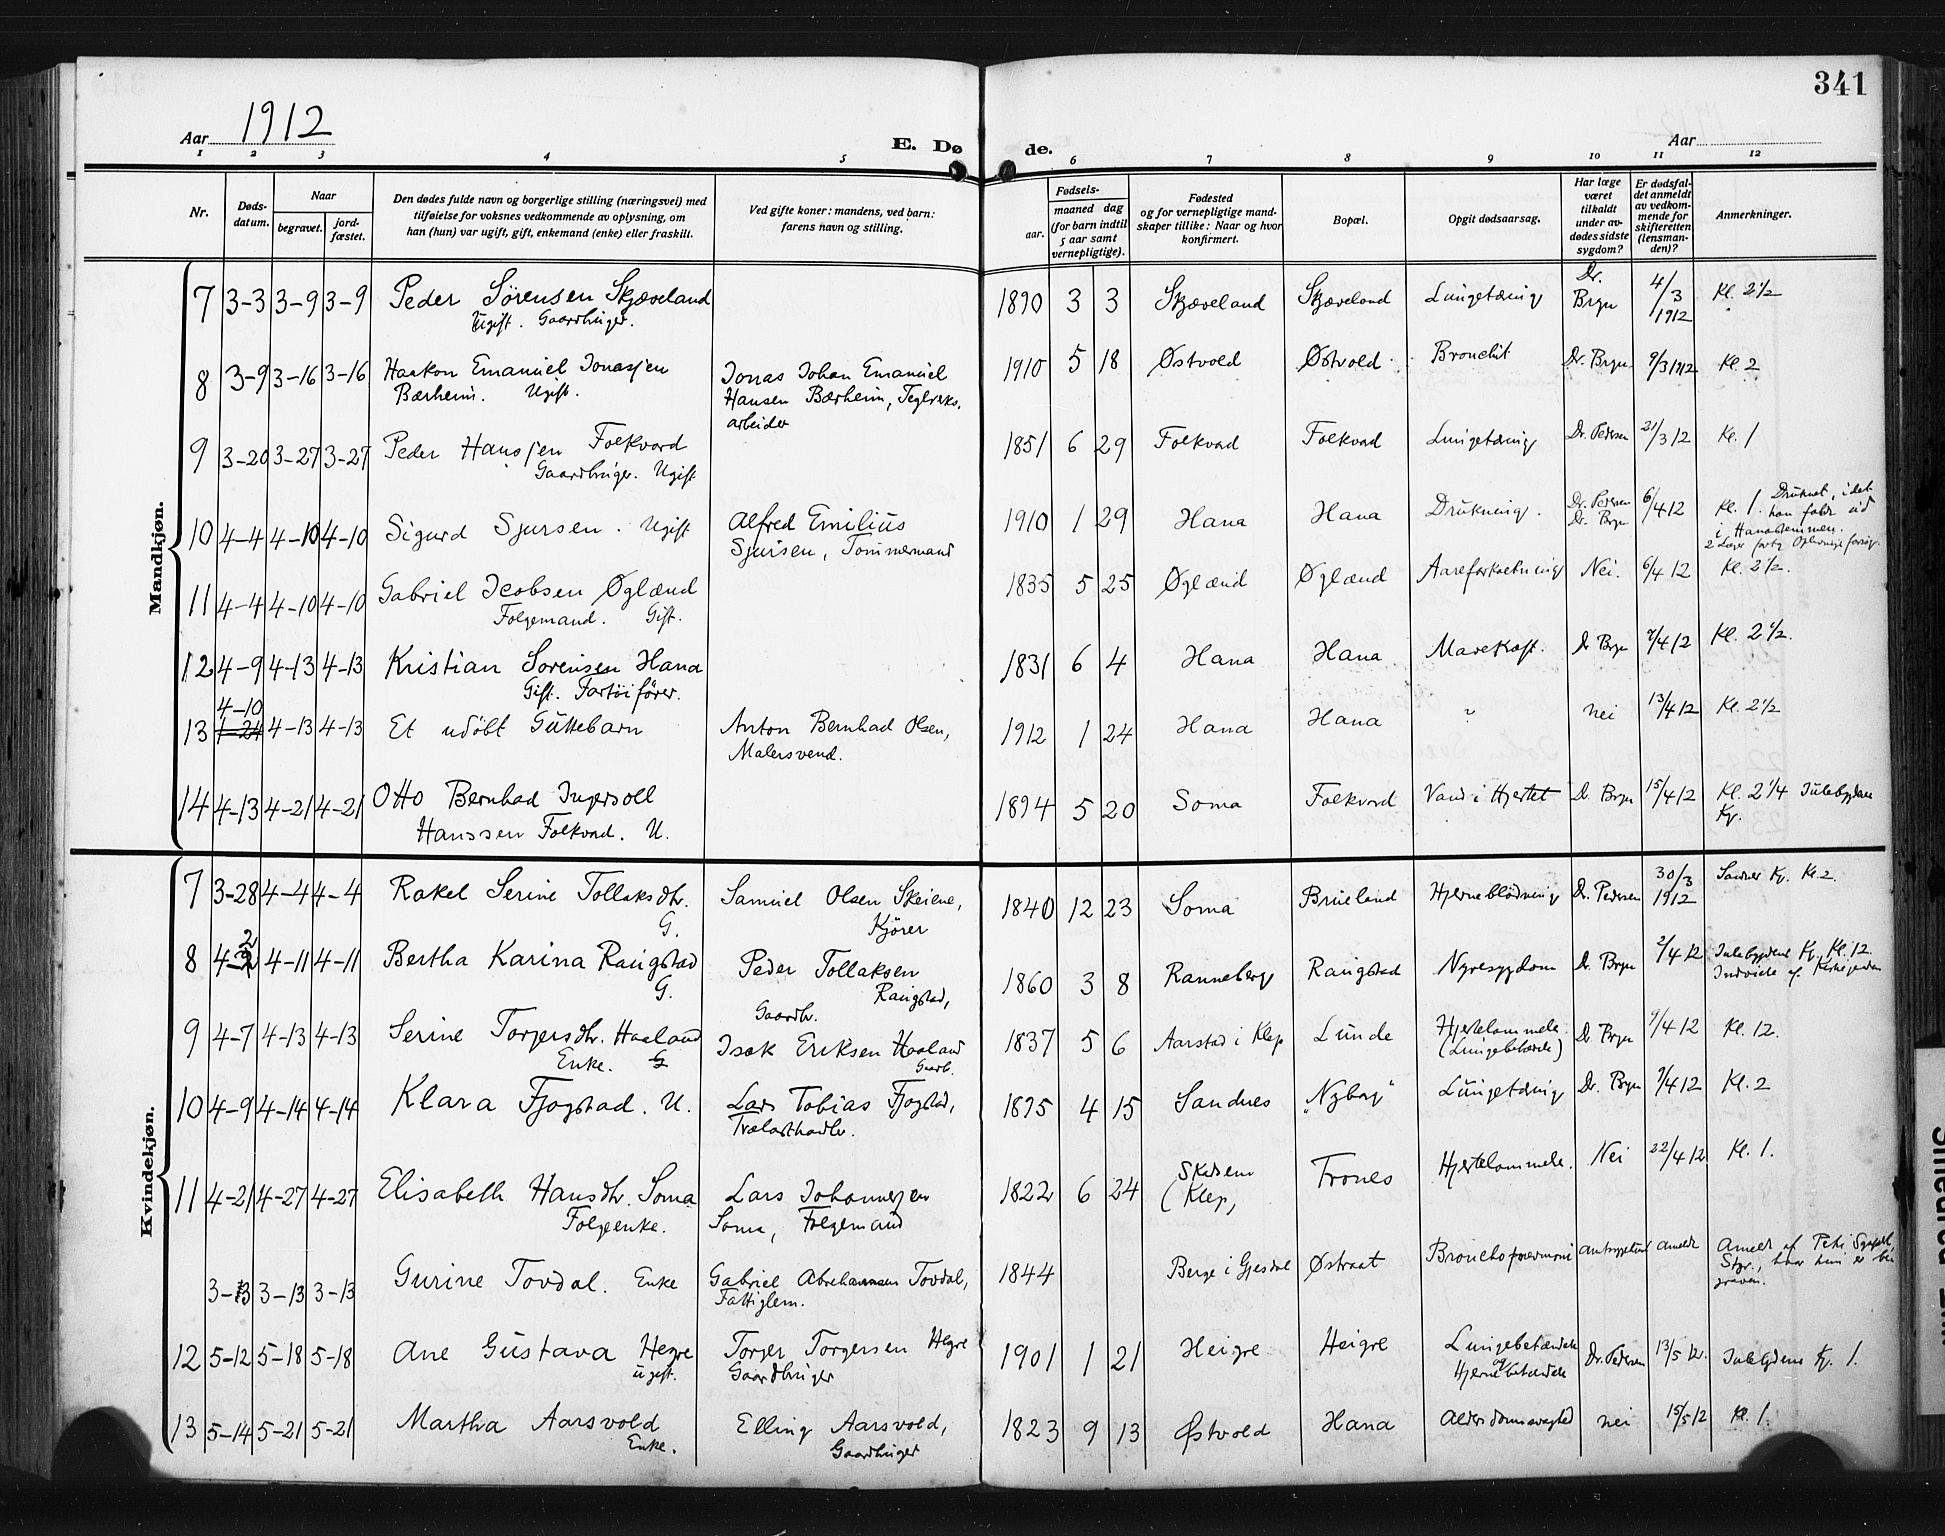 341
Aar 1912
E. Dø de.
Aar
1 2 3 4 5 6 7 8 9 10 11 12
Nr.
Døds-
datum.
Naar
begravet.
jord-
fæstet.
Den dødes fulde navn og borgerlige stilling (næringsvei) med
tilføielse for voksnes vedkommende av oplysning, om
han (hun) var ugift, gift, enkemand (enke) eller fraskilt.
Ved gifte koner: mandens, ved barn:
farens navn og stilling.
Fødsels-
aar.
maaned dag
(for barn indtil
5 aar samt
vernepligtige).
Fødested
og for vernepligtige mand-
skaper tillike: Naar og hvor
konfirmert.
Bopæl.
Opgit dødsaarsag.
Har læge
været
tilkaldt
under av-
dødes sidste
sygdom?
Er dødsfal-
det anmeldt
av vedkom-
mende for
skifteretten
(lensman-
den)?
Anmerkninger.
Mandkjøn.
7 3-3 3-9 3-9 Peder Sørensen Skjæveland 1890 3 3 Skjæveland Skjæveland Lungetæring Dr. Bryn 4/3 1912 Kl. 2 1/2
Ugift. Gaardbruger.
8 3-9 3-16 3-16 Haakon Emanuel Jonassen Jonas Johan Emanuel 1910 5 18 Østvold Østvold Bronchit Dr. Bryn 9/3 1912 Kl 2
Bærheim. Ugift. Hansen Bærheim, Teglverks.
arbeider
9 3-20 3-27 3-27 Peder Hanssen Folkvord 1851 6 29 Folkvod Folkvod Lungetæring Dr. Pedersen 21/3 12 Kl. 1
Gaardbruger. Ugift
10 4-4 4-10 4-10 Sigurd Sjursen. Ugift Alfred Emilius 1910 1 29 Hana Hana Drukning. Dr. Pedersen Dr. Bryn 6/4 12 Kl. 1. Druknet, idet
Sjursen, Tømmermand han faldt ud
i Hanadammen.
2 Læger
11 4-4 4-10 4-10 Gabriel Jcobsen Øglænd 1835 5 25 Øglænd Øglænd Aareforkalkning Nei. 6/4 12 Kl. 2 1/2.
Folgemand. Gift.
12 4-9 4-13 4-13 Kristian Sørensen Hana 1831 6 4 Hana Hana Mavekræft. Dr Bryn 9/4 12 Kl. 2 1/2.
Gift. Fartøifører.
4-10
13 1-24 4-13 4-13 Et udöbt Guttebarn Anton Bernhad Olsen, 1912 1 24 Hana Hana ? nei 13/4 12 Kl. 2 1/2
Malersvend.
14 4-13 4-21 4-21 Otto Bernhad Ingersoll 1894 5 20 Soma Folkvord Vand i Hjertet D. Bryn 15/4 12 Kl. 2 1/4 Julebygdens
Hanssen Folkvod. U. Kg.
Kvindekjøn.
7 3-28 4-4 4-4 Rakel Serine Tollaksdtr. Samuel Olsen Skeiene, 1840 12 23 Soma Brueland Hjerneblödning Dr. Pedersen 30/3 1912 Sandnes Kg. Kl. 2.
G. Kjörer
8 4-2 4-11 4-11 Bertha Karina Raugstad Peder Tollaksen 1860 3 8 Ranneberg Raugstad Nyresygdom Dr. Bryn 2/4 12 Julebygdens Kg. Kl. 12.
G. Raugstad, Gaardbr. Indviede af Kirkegaarden
9 4-7 4-13 4-13 Serine Torjersdtr. Haaland Isak Eriksen Haaland 1837 5 6 Aarstad i Klep Lunde Hjertelammelse. Dr. Bryn 9/4 12 Kl. 12.
Enke. G Gaardb. (Lungebetændelse)
10 4-9 4-14 4-14 Klara Fjogstad. U. Lars Tobias Fjogstad, 1895 4 15 Sandnes "Nyborg" Lungetæring Dr. Bryn 9/4 12 Kl. 2
Trælasthandlr.
11 4-21 4-27 4-27 Elisabeth Hansdtr. Soma Lars Johannessen 1822 6 24 (Klep, Trones Hjertelammelse. Nei 22/4 12 Kl. 1.
Folgeenke. Soma, Folgemand
3-13 3-13 3-13 Gurine Tovdal. Enke Gabriel Abrahamsen Tovdal, 1844 Berge i Gjesdal Østraat Bronchopneumoni anmeldt Anmeldt af
Fattiglem. hvor hun er be-
graven.
12 5-12 5-18 5-18 Ane Gustava Hegre Torger Torgersen Hegre 1901 1 21 Heigre Heigre Lungebetændelse Dr. Pedersen 13/5 12. Julebygdens Kg. 1.
ugift. Gaardbruger og Hjernebetændelse
13 5-14 5-21 5-21 Martha Aarsvold Elling Aarsvold, 1823 9 13 Østvold Hana Alderdomssvaghed nei 15/5 12 Kl. 1.
Enke. Gaardbruger